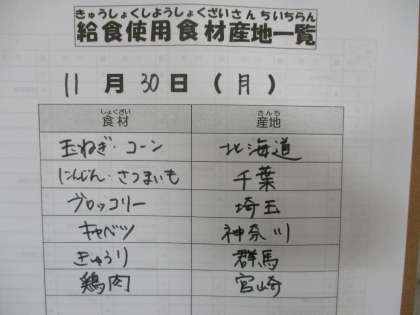 きゅうしょくしようしょくざいさんちいちらん
給食使用食材産地一覧
11月30日(月)
しょくざい さんち
食材 産地
玉ねぎ・コーン 北海道
にんじん・さつまいも 千葉
ブロッコリー 埼玉
キャベツ 神奈川
きゅうり 群馬
鶏肉 宮崎